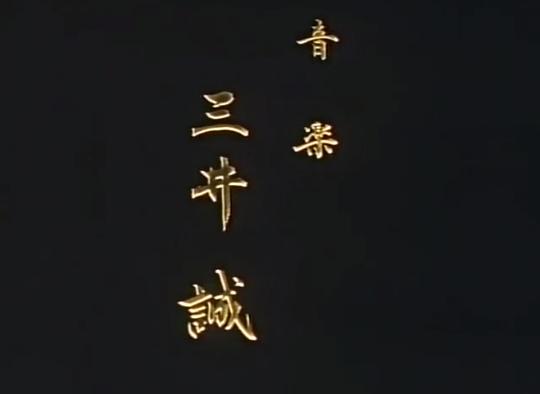 音楽
三井誠